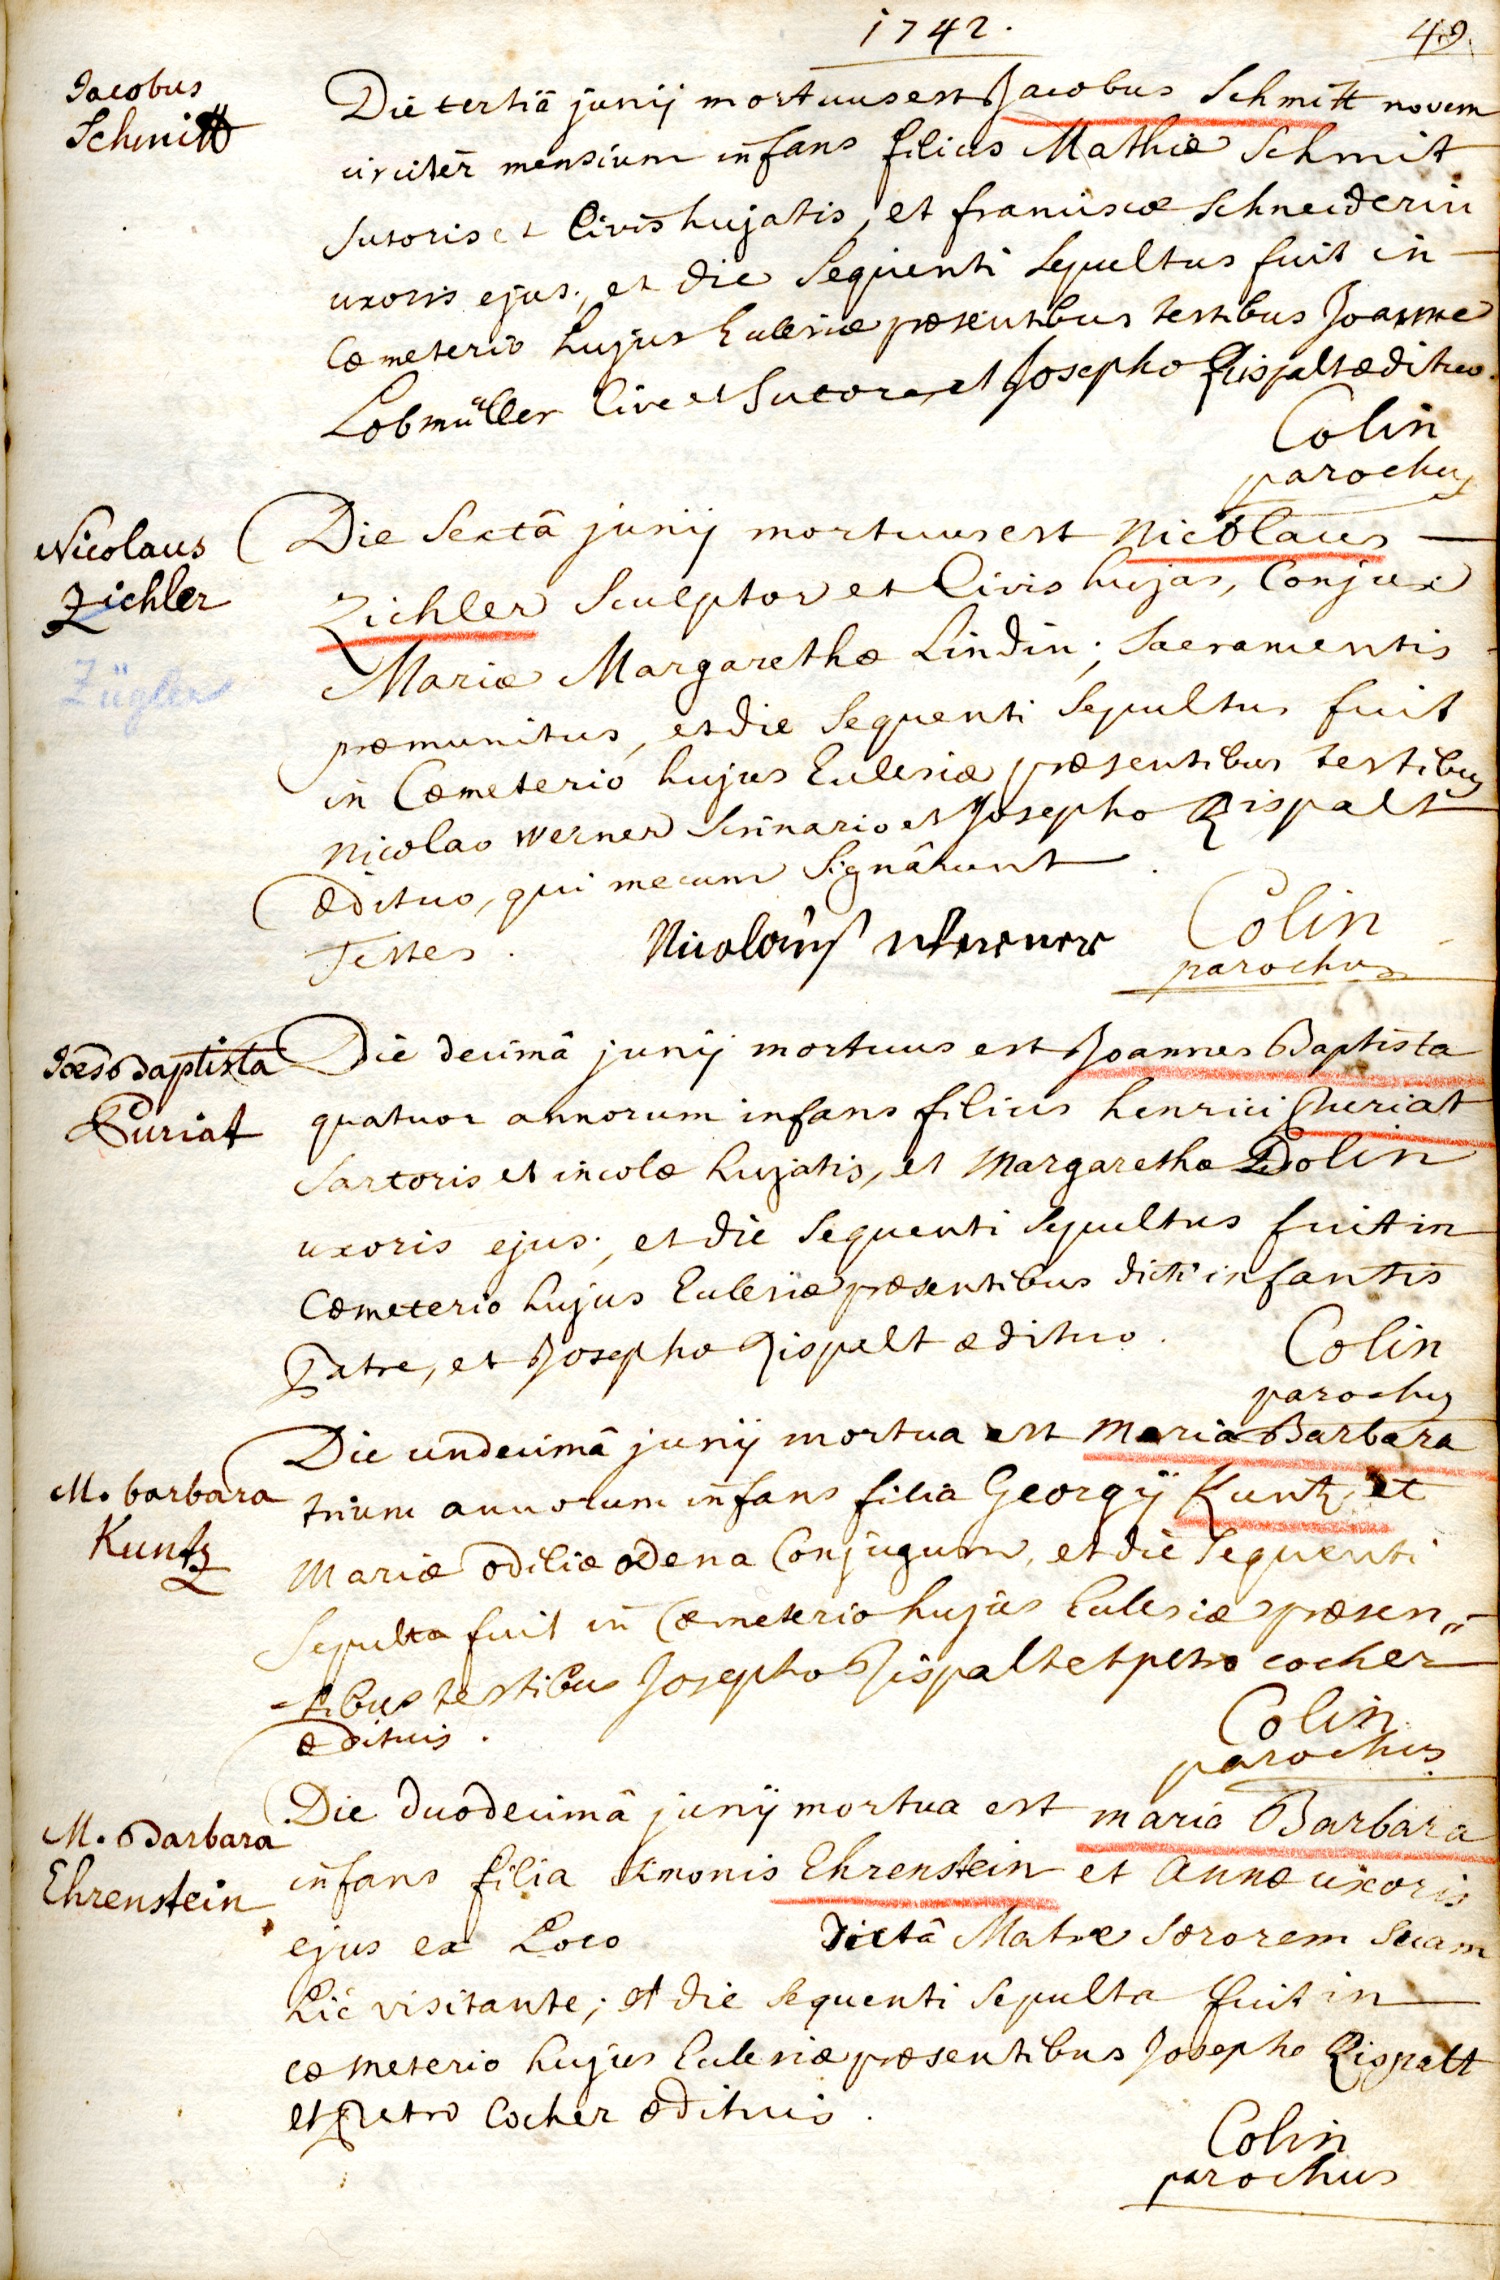 1742.
49.
Jacobus
Schmitt
Die tertiâ junij mortuus est Jacobus Schmitt novem
circiter mensium infans filius Mathiæ Schmit
sutoris et Civis hujatis, et franciscæ Schneiderin
uxoris ejus, et die sequenti sepultus fuit in
Cæmeterio hujus Ecclesiæ præsentibus testibus Joanne
Lobmüller Cive et Sutore et Josepho Rispalt ædituo.
Colin
parochus
Nicolaus
Zichler
Zügler
Die Sextâ junij mortuus est Nicolaus
Zichler Sculptor et Civis hujas, Conjux
Mariæ Margarethæ Lindin; Sacramentis
præmunitus, et die sequenti sepultus fuit
in Cæmeterio hujus Ecclesiæ præsentibus testibus
Nicolao Werner Scrinario et Josepho Rispalt
Ædituo, qui mecum Signârunt
Testes.
Nicolaus Werner
Colin
parochus
Joes Baptista
Curiat
Die decimâ junij mortuus est Joannes Baptista
quatuor annorum infans filius henrici Churiat
Sartoris et incolæ hujatis, et Margarethæ Dolin
uxoris ejus, et die sequenti sepultus fuit in
Cæmeterio hujus Ecclesiæ præsentibus dicti infantis
Patre, et Josepho Rispalt ædituo.
Colin
parochus
M. barbara
Kuntz
Die undecimâ junij mortua est Maria Barbara
trium annorum infans filia Georgij Kuntz et
Mariæ odiliæ odena Conjugum, et die sequenti
Sepulta fuit in Cæmeterio hujus Ecclesiæ præsen„
-tibus testibus Josepho Rispalt et petro cocher
ædituis.
Colin
parochus
M. Barbara
Ehrenstein
Die duodecimâ junij mortua est maria Barbara
infans filia Simonis Ehrenstein et Annæ uxoris
ejus ex Loco dictâ Matre Sororem Suam
hic visitante; et die sequenti sepulta fuit in
cæmeterio hujus Ecclesiæ præsentibus Josepho Rispalt
et Petro Cocher ædituis.
Colin
parochus